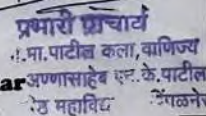 प्रभारी प्राचार्य
.मा.पाटील कला,वाणिज्य
ar अण्णासाहेब एस.के.पाटील
महाविद्य पिंपळनेर